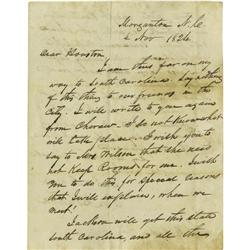 Morganton N.C
4 Nov 1824
Dear Houston
I am thus far on my
way to South Carolina. Say nothing
of this thing to our friends in the
City. I will write to you again
from Cheraw. I do not know what
will take place. I wish you to
say to Mrs Wilson that she need
not Keep Rooms for me. I wish
you to do this for special reasons
that I will explain, when we
meet.
Jackson will get this state
South Carolina and all the